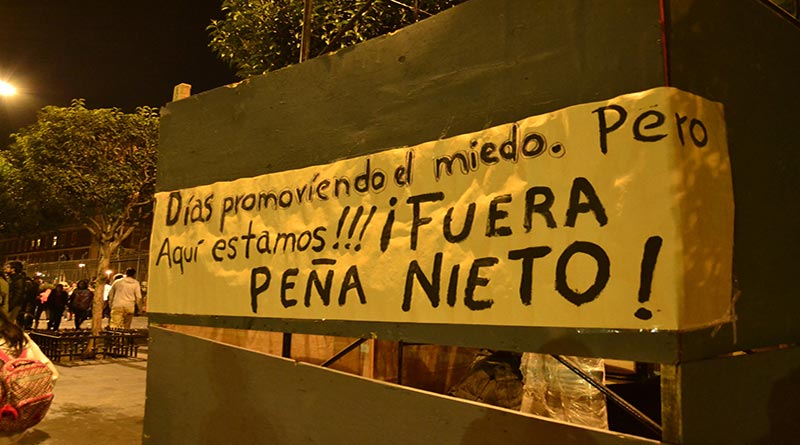 Días promoviendo el miedo. Pero
Aquí estamos!!! ¡FUERA
PEÑA NIETO!